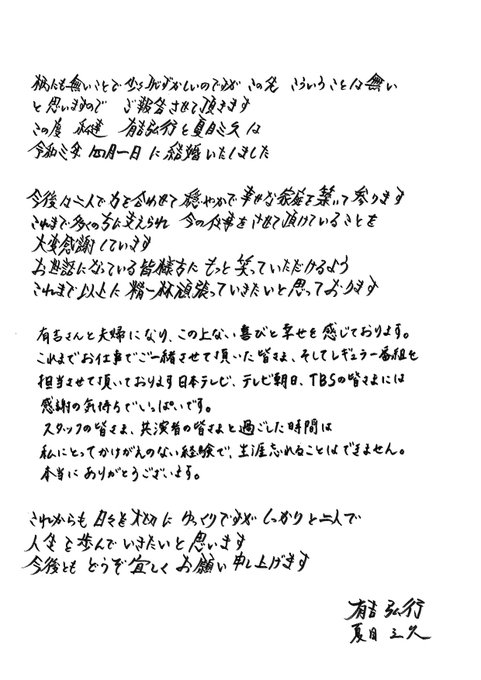 柄にも無いことで少々恥ずかしいのですが この先 こういうことは無い
と思いますので ご報告させて頂きます
この度 私達 有吉弘行と夏目三久は
令和三年 四月一日に結婚いたしました
今後は二人で力を合わせて穏やかで幸せな家庭を築いて参ります
これまで多くの方に支えられ 今の仕事をさせて頂けていることを
大変感謝しています
お世話になっている皆様方に もっと笑っていただけるよう
これまで以上に精一杯頑張っていきたいと思っております
有吉さんと夫婦になり、この上ない喜びと幸せを感じております。
これまでお仕事でご一緒させて頂いた皆さま、そしてレギュラー番組を
担当させて頂いております日本テレビ、テレビ朝日、TBSの皆さまには
感謝の気持ちでいっぱいです。
スタッフの皆さま、共演者の皆さまと過ごした時間は
私にとってかけがえのない経験で、生涯忘れることはできません。
本当にありがとうございます。
これからも 日々を大切に ゆっくりですが しっかりと二人で
人生を歩んでいきたいと思います
今後とも どうぞ宜しく お願い申し上げます
有吉弘行
夏目三久